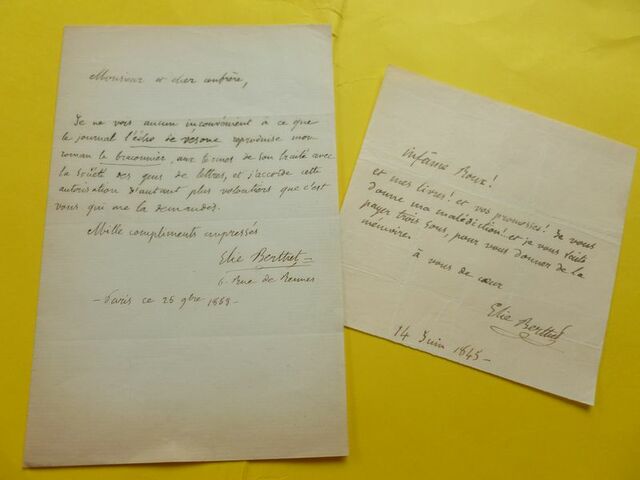 Monsieur et cher confrère,
Je ne vois aucun inconvénient à ce que
le journal l'écho de vésone reproduise mon
roman le braconnier, aux termes de son traité avec
la Société des gens de lettres, et j'accorde cette
autorisation d'autant plus volontiers que c'est
vous qui me la demandez.
Mille compliments empressés
Elie Berthet
6 Rue de Rennes
- Paris ce 26 9bre
Infâme Roux!
et mes livres! et vos promesses! Je vous
donne ma malédiction! et je vous
payer trois sous, pour vous donner de la
mémoire.
à vous de cœur
Elie Berthet
14 Juin 1845 -